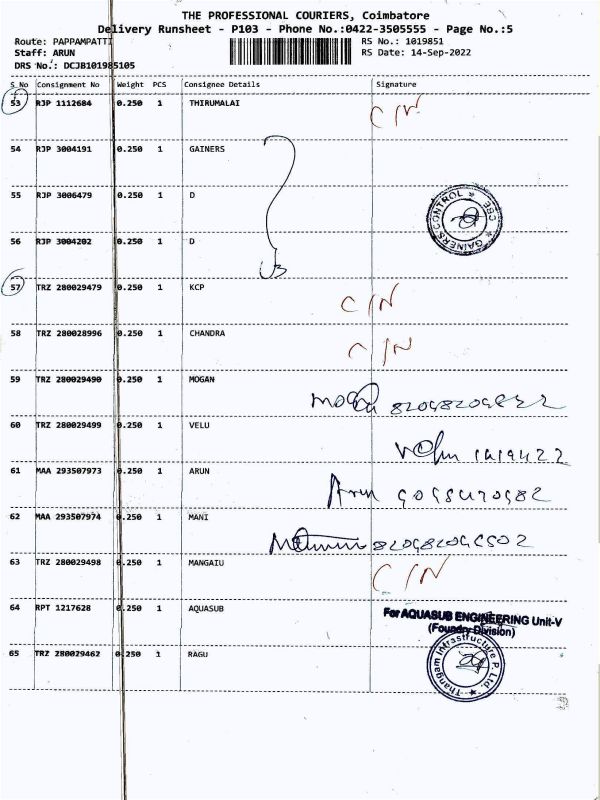 THE PROFESSIONAL COURIERS, Coimbatore
Delivery Runsheet - P103 - Phone No.:0422-3505555 - Page No.:5
Route: PAPPAMPATTI RS No.: 1019851
Staff: ARUN RS Date: 14-Sep-2022
DRS No.: DCJB101985105
S No Consignment No Weight PCS Consignee Details Signature
53 RJP 1112684 0.250 1 THIRUMALAI C/N
54 RJP 3004191 0.250 1 GAINERS
55 RJP 3006479 0.250 1 D
GAINERS CONTROL ★ CBE ★
56 RJP 3004202 0.250 1 D
57 TRZ 280029479 0.250 1 KCP C/N
58 TRZ 280028996 0.250 1 CHANDRA C/N
59 TRZ 280029490 0.250 1 MOGAN
60 TRZ 280029499 0.250 1 VELU Velu
61 MAA 293507973 0.250 1 ARUN Arun
62 MAA 293507974 0.250 1 MANI
63 TRZ 280029498 0.250 1 MANGAIU C/N
64 RPT 1217628 0.250 1 AQUASUB For AQUASUB ENGINEERING Unit-V
(Foundry Division)
65 TRZ 280029462 0.250 1 RAGU
Thangam Infrastructure P. Ltd. ★